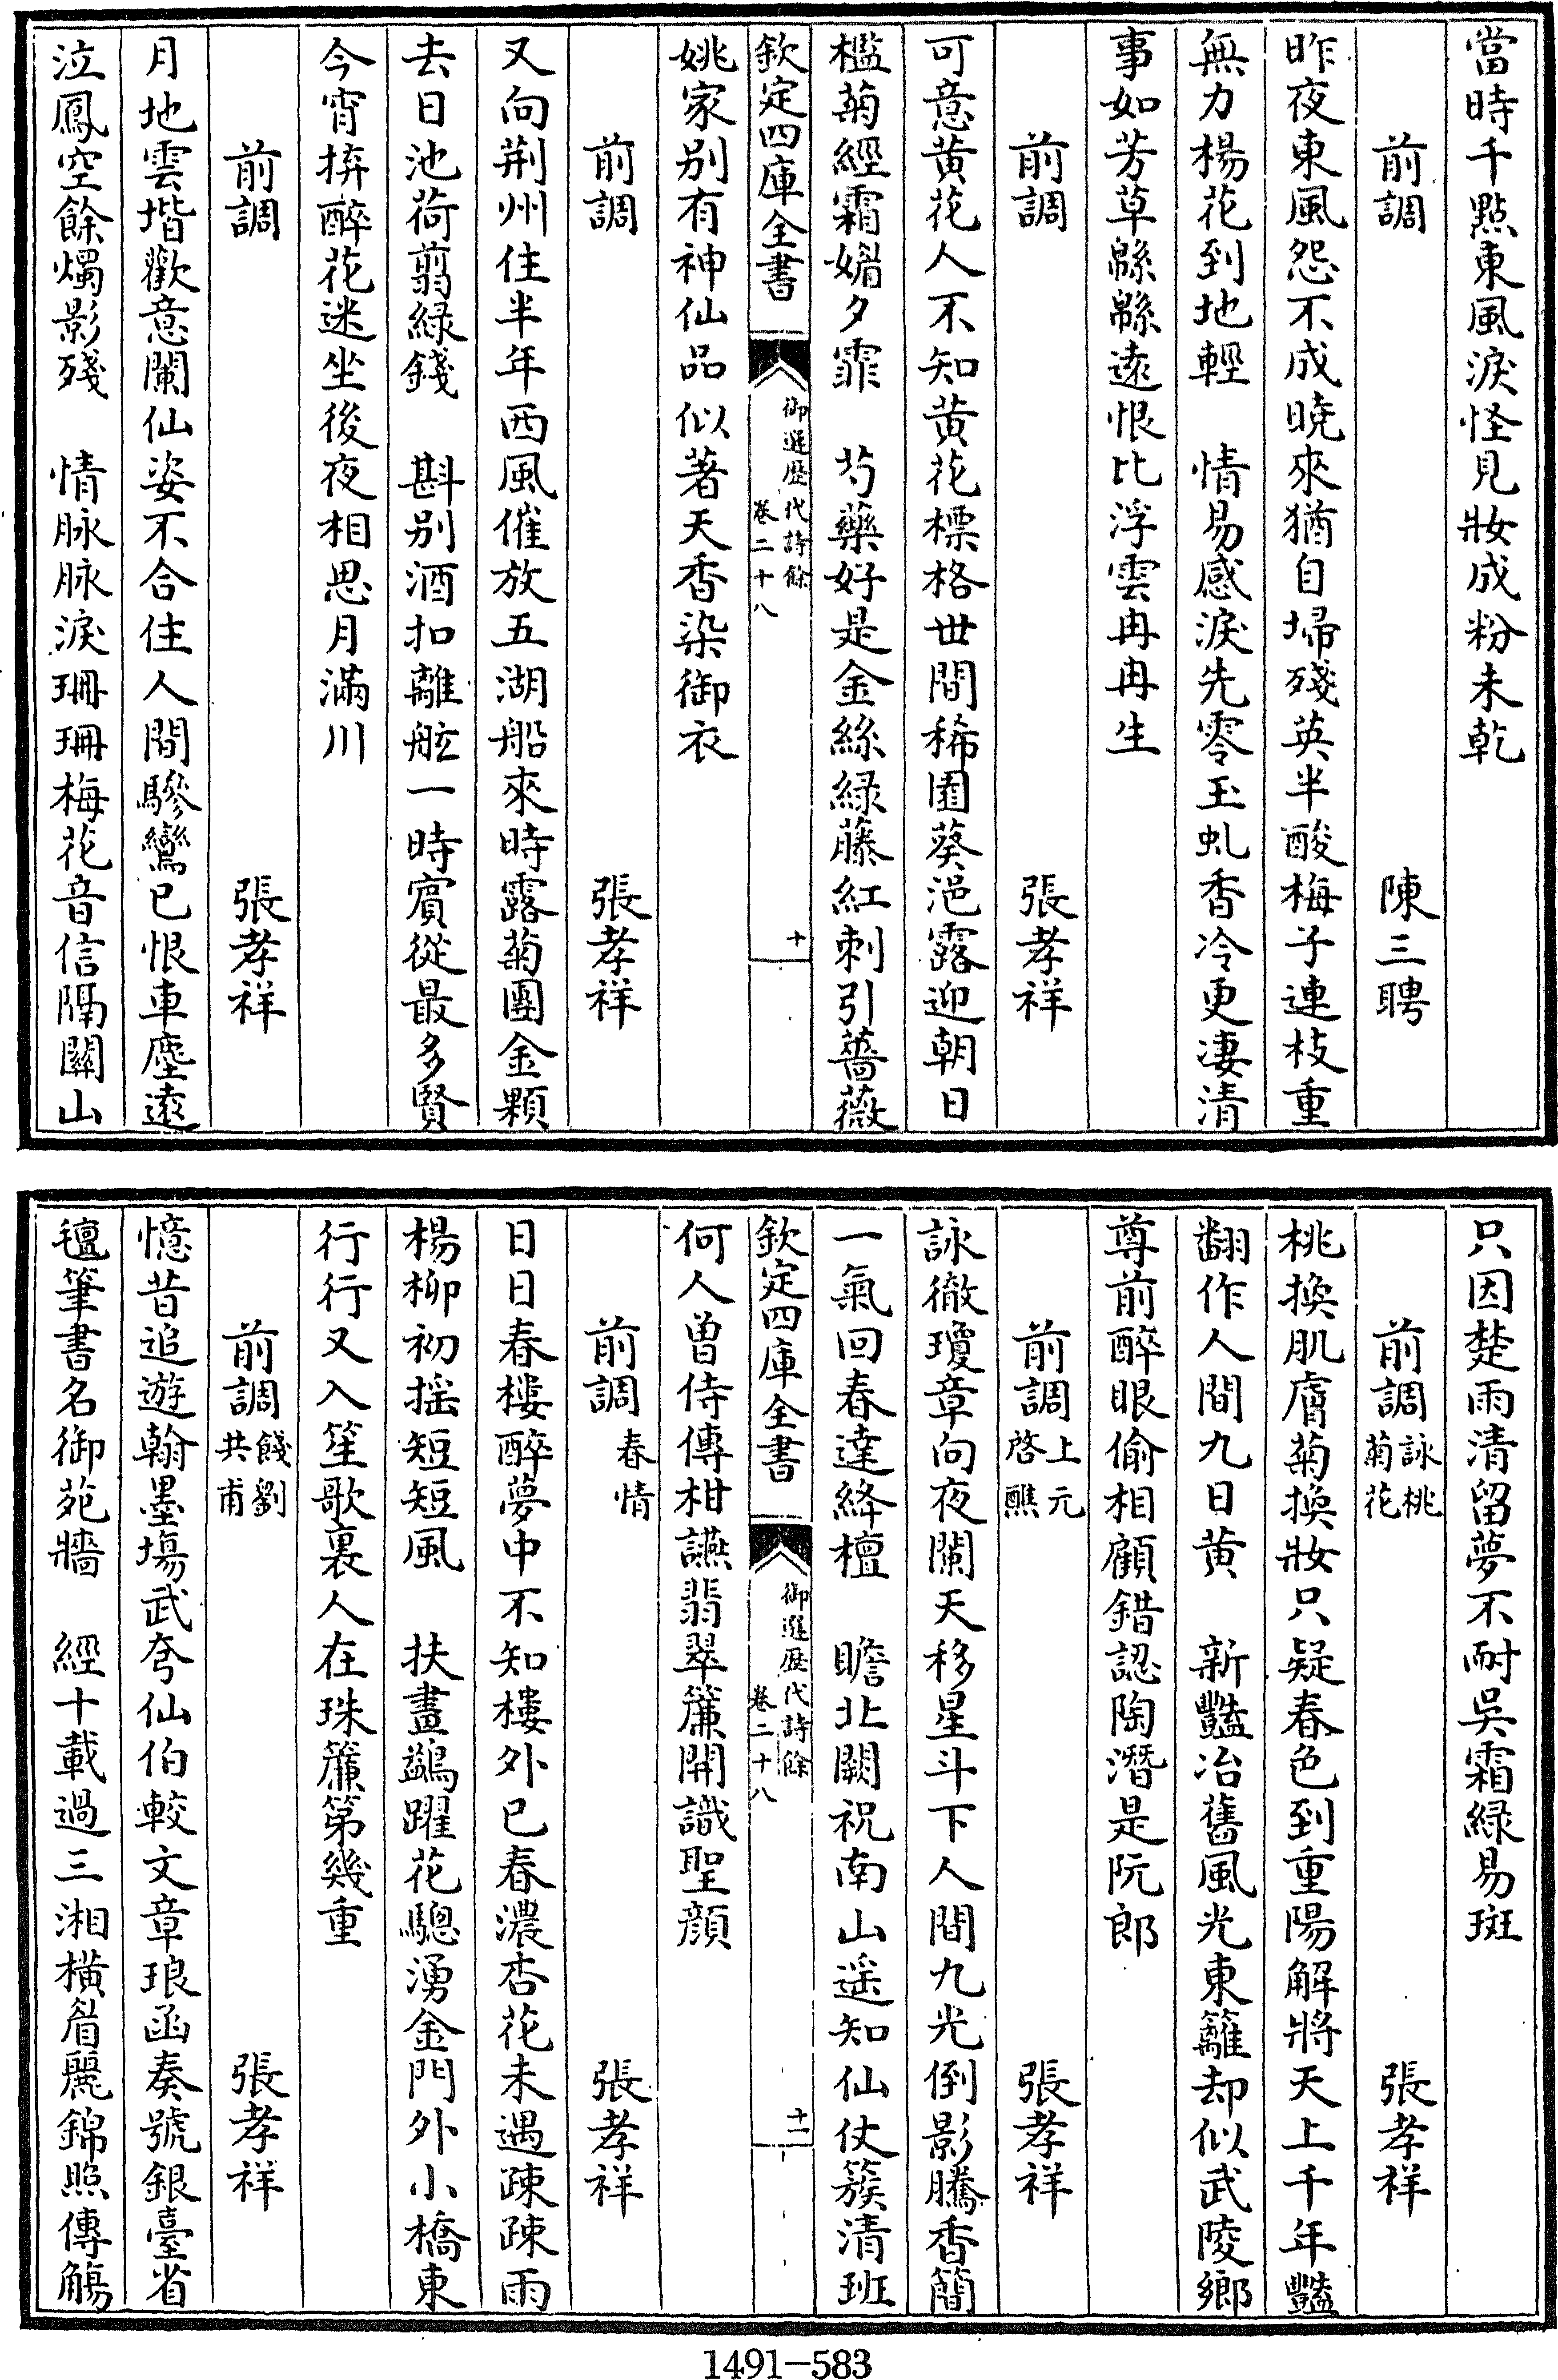 當時千點東風淚怪見妝成粉未乾
前調　陳三聘
昨夜東風怨不成曉來猶自埽殘英半酸梅子連枝重
無力楊花到地輕　情易感淚先零玉虬香冷更淒清
事如芳草緜緜遠恨比浮雲冉冉生
前調　張孝祥
可意黃花人不知黃花標格世間稀園葵浥露迎朝日
檻菊經霜媚夕霏　芍藥好是金絲綠藤紅刺引薔薇
欽定四庫全書　御選歷代詩餘卷二十八　十
姚家別有神仙品似著天香染御衣
前調　張孝祥
又向荆州住半年西風催放五湖船來時露菊團金顆
去日池荷翦綠錢　斟別酒扣離舷一時賓從最多賢
今宵拚醉花迷坐後夜相思月滿川
前調　張孝祥
月地雲堦歡意闌仙姿不合住人間驂鸞已恨車塵遠
泣鳳空餘燭影殘　情脉脉淚珊珊梅花音信隔關山
只因楚雨清留夢不耐吳霜綠易斑
前調詠桃菊花　張孝祥
桃換肌膚菊換妝只疑春色到重陽解將天上千年豔
翻作人間九日黃　新豔冶舊風光東籬却似武陵鄉
尊前醉眼偷相顧錯認陶潛是阮郎
前調上元啓醮　張孝祥
詠徹瓊章向夜闌天移星斗下人間九光倒影騰香簡
一氣回春達絳檀　瞻北闕祝南山遥知仙仗簇清班
欽定四庫全書　御選歷代詩餘卷二十八　十一
何人曾侍傳柑讌翡翠簾開識聖顔
前調春情　張孝祥
日日春樓醉夢中不知樓外已春濃杏花未遇疎疎雨
楊柳初摇短短風　扶畫鷁躍花驄湧金門外小橋東
行行又入笙歌裏人在珠簾第幾重
前調餞劉共甫　張孝祥
憶昔追遊翰墨塲武夸仙伯較文章琅函奏號銀臺省
氊筆書名御苑牆　經十載過三湘横眉麗錦照傳觴
1491—583